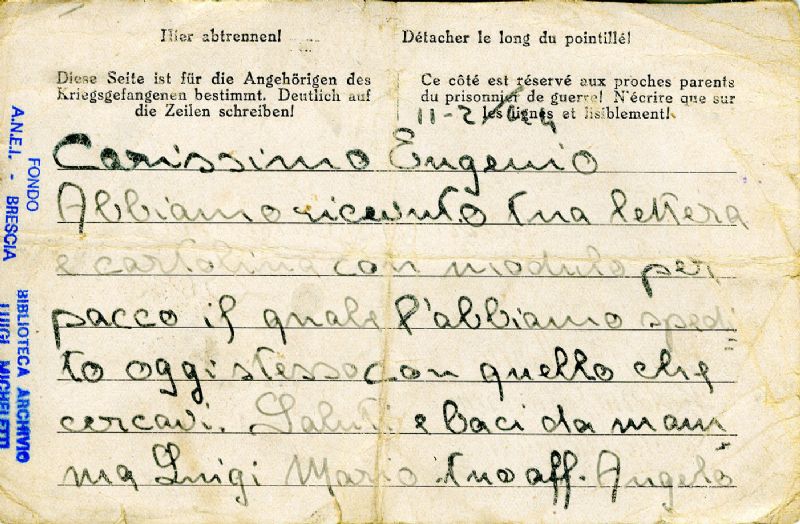 Hier abtrennen!
Détacher le long du pointillé!
Diese Seite ist für die Angehörigen des
Kriegsgefangenen bestimmt. Deutlich auf
die Zeilen schreiben!
Ce côté est réservé aux proches parents
du prisonnier de guerre! N'écrire que sur
les lignes et lisiblement!
11-2/44
Carissimo Eugenio
Abbiamo ricevuto tua lettera
e cartolina con modulo per
pacco il quale l'abbiamo spedi
to oggi stesso con quello che
cercavi. Saluti e baci da mam
ma Luigi Mario tuo aff. Angelo
FONDO
A.N.E.I. - BRESCIA
BIBLIOTECA ARCHIVIO
LUIGI MICHELETTI